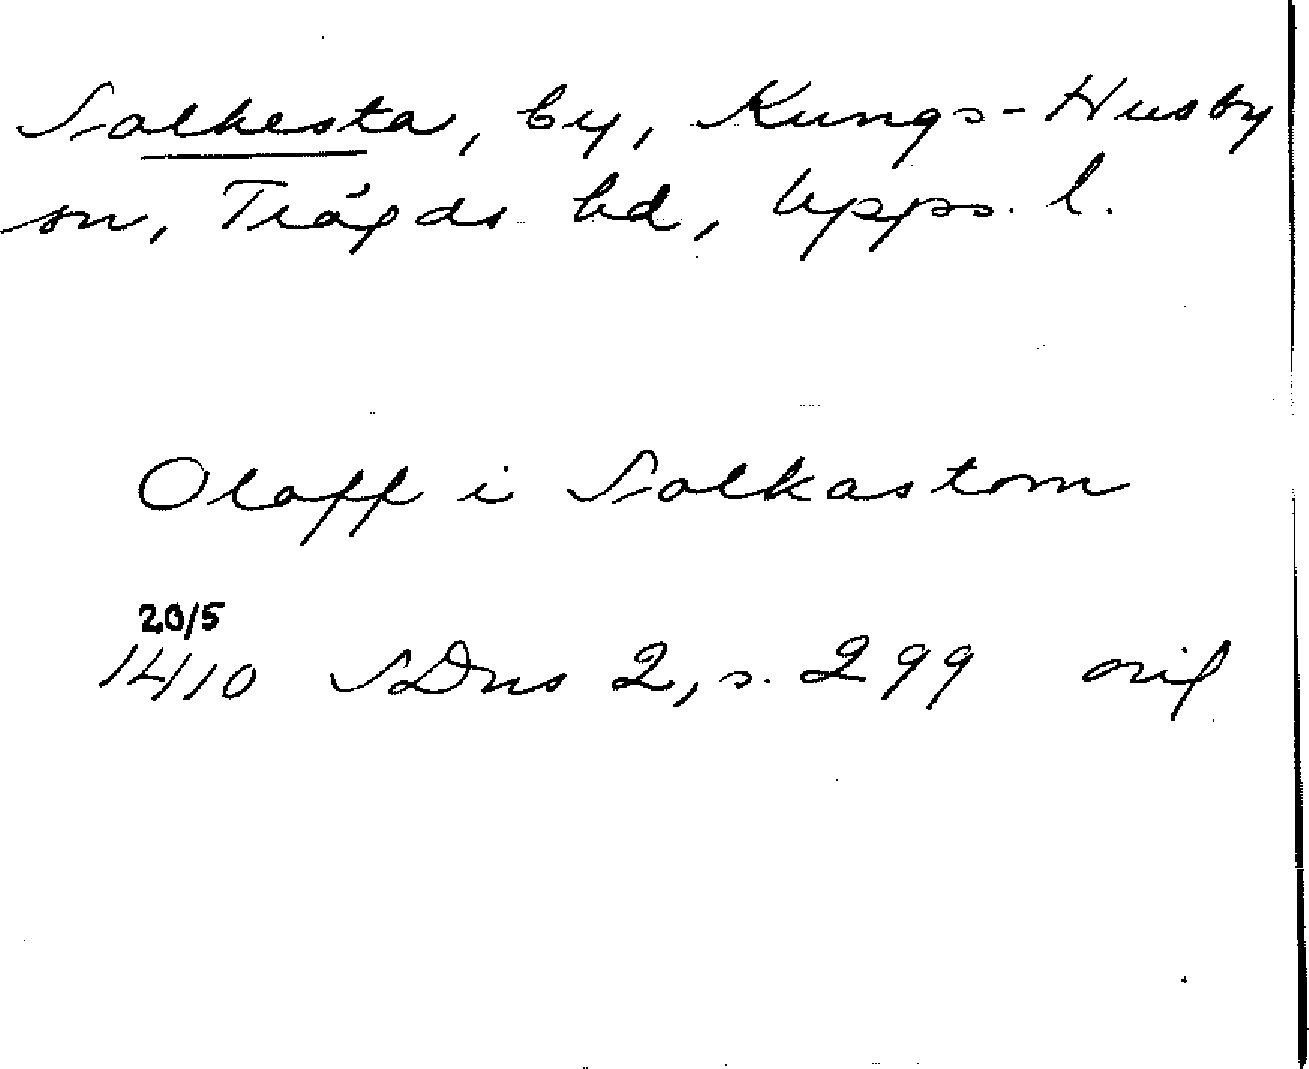 Solkesta, by, Kungs-Husby
sn, Trögds hd, Upps. l.
Olaff i Solkastom
20/5
1410 SDns 2, s. 299 orig